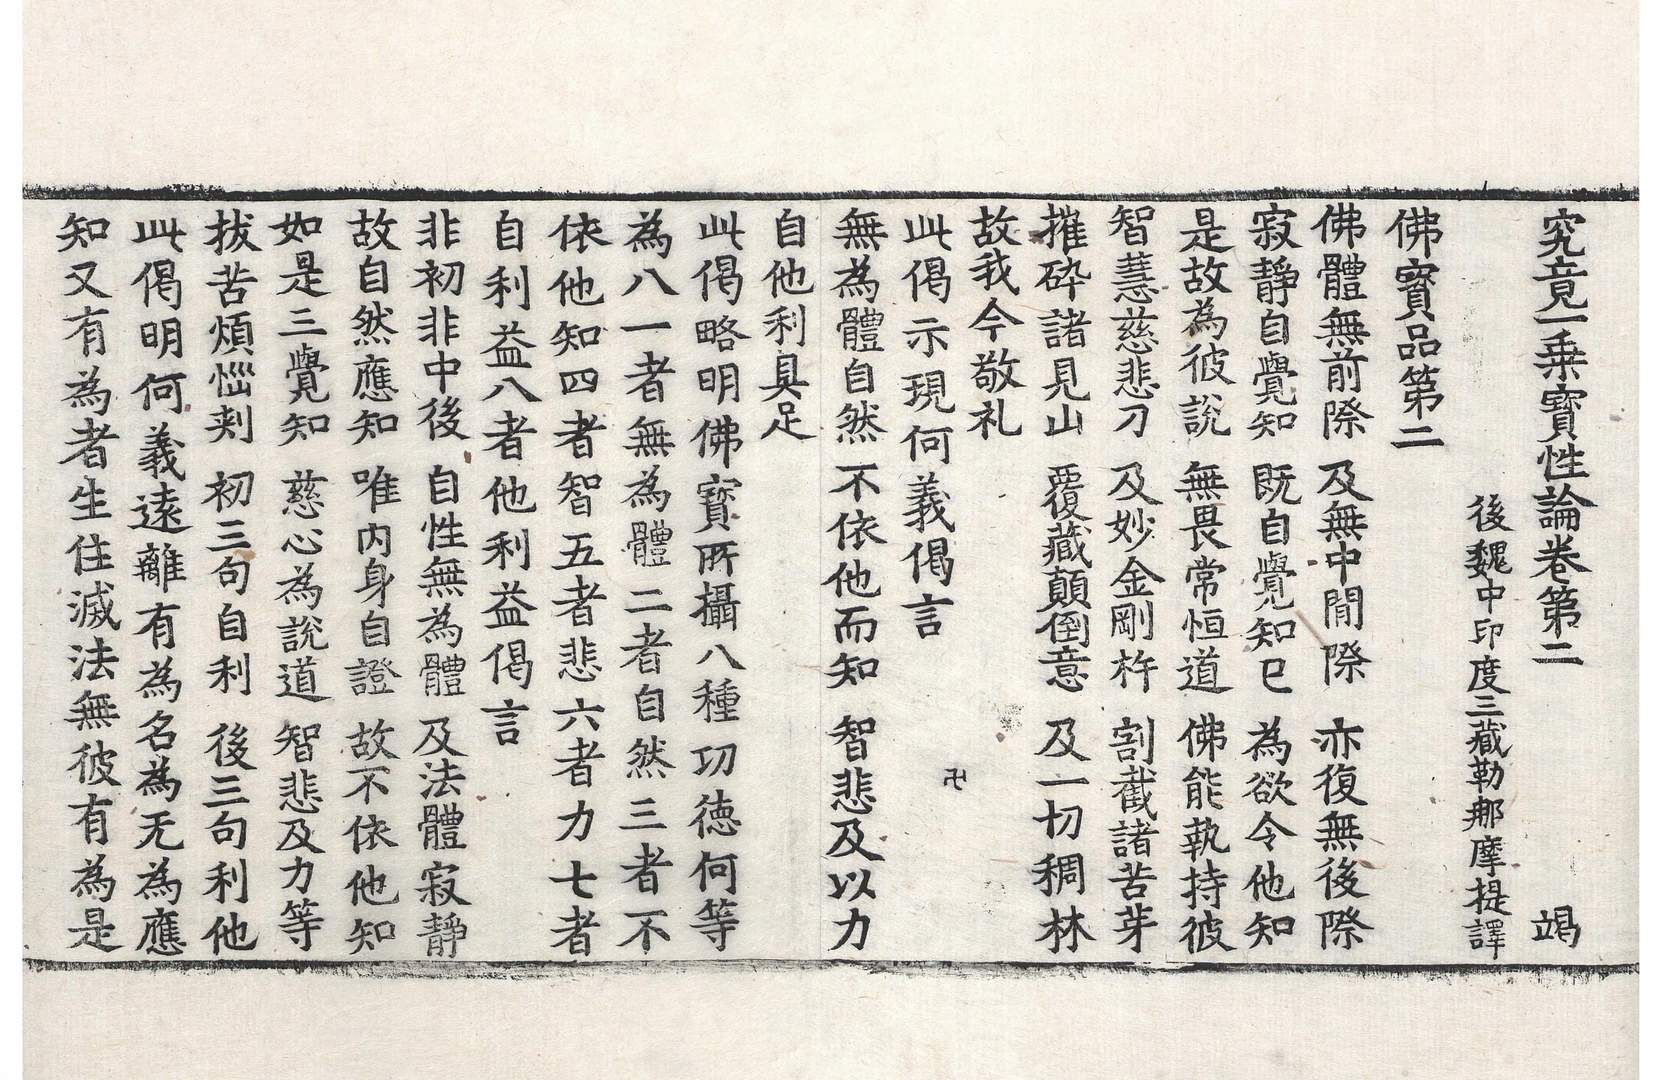 究竟一乗寶性論卷第二 竭
後魏中印度三藏勒那摩提譯
佛寳品第二
佛體無前際 及無中間際 亦復無後際
寂靜自覺知 既自覺知已 為欲令他知
是故為彼說 無畏常恒道 佛能執持彼
智慧慈悲刀 及妙金剛杵 割截諸苦芽
摧碎諸見山 覆藏顛倒意 及一切稠林
故我今敬礼
此偈示現何義偈言
無為體自然 不依他而知 智悲及以力
自他利具足
此偈略明佛寳所攝八種功德何等
為八一者無為體二者自然三者不
依他知四者智五者悲六者力七者
自利益八者他利益偈言
非初非中後 自性無為體 及法體寂靜
故自然應知 唯内身自證 故不依他知
如是三覺知 慈心為說道 智悲及力等
拔苦煩惱刺 初三句自利 後三句利他
此偈明何義遠離有為名為无為應
知又有為者生住滅法無彼有為是
卍